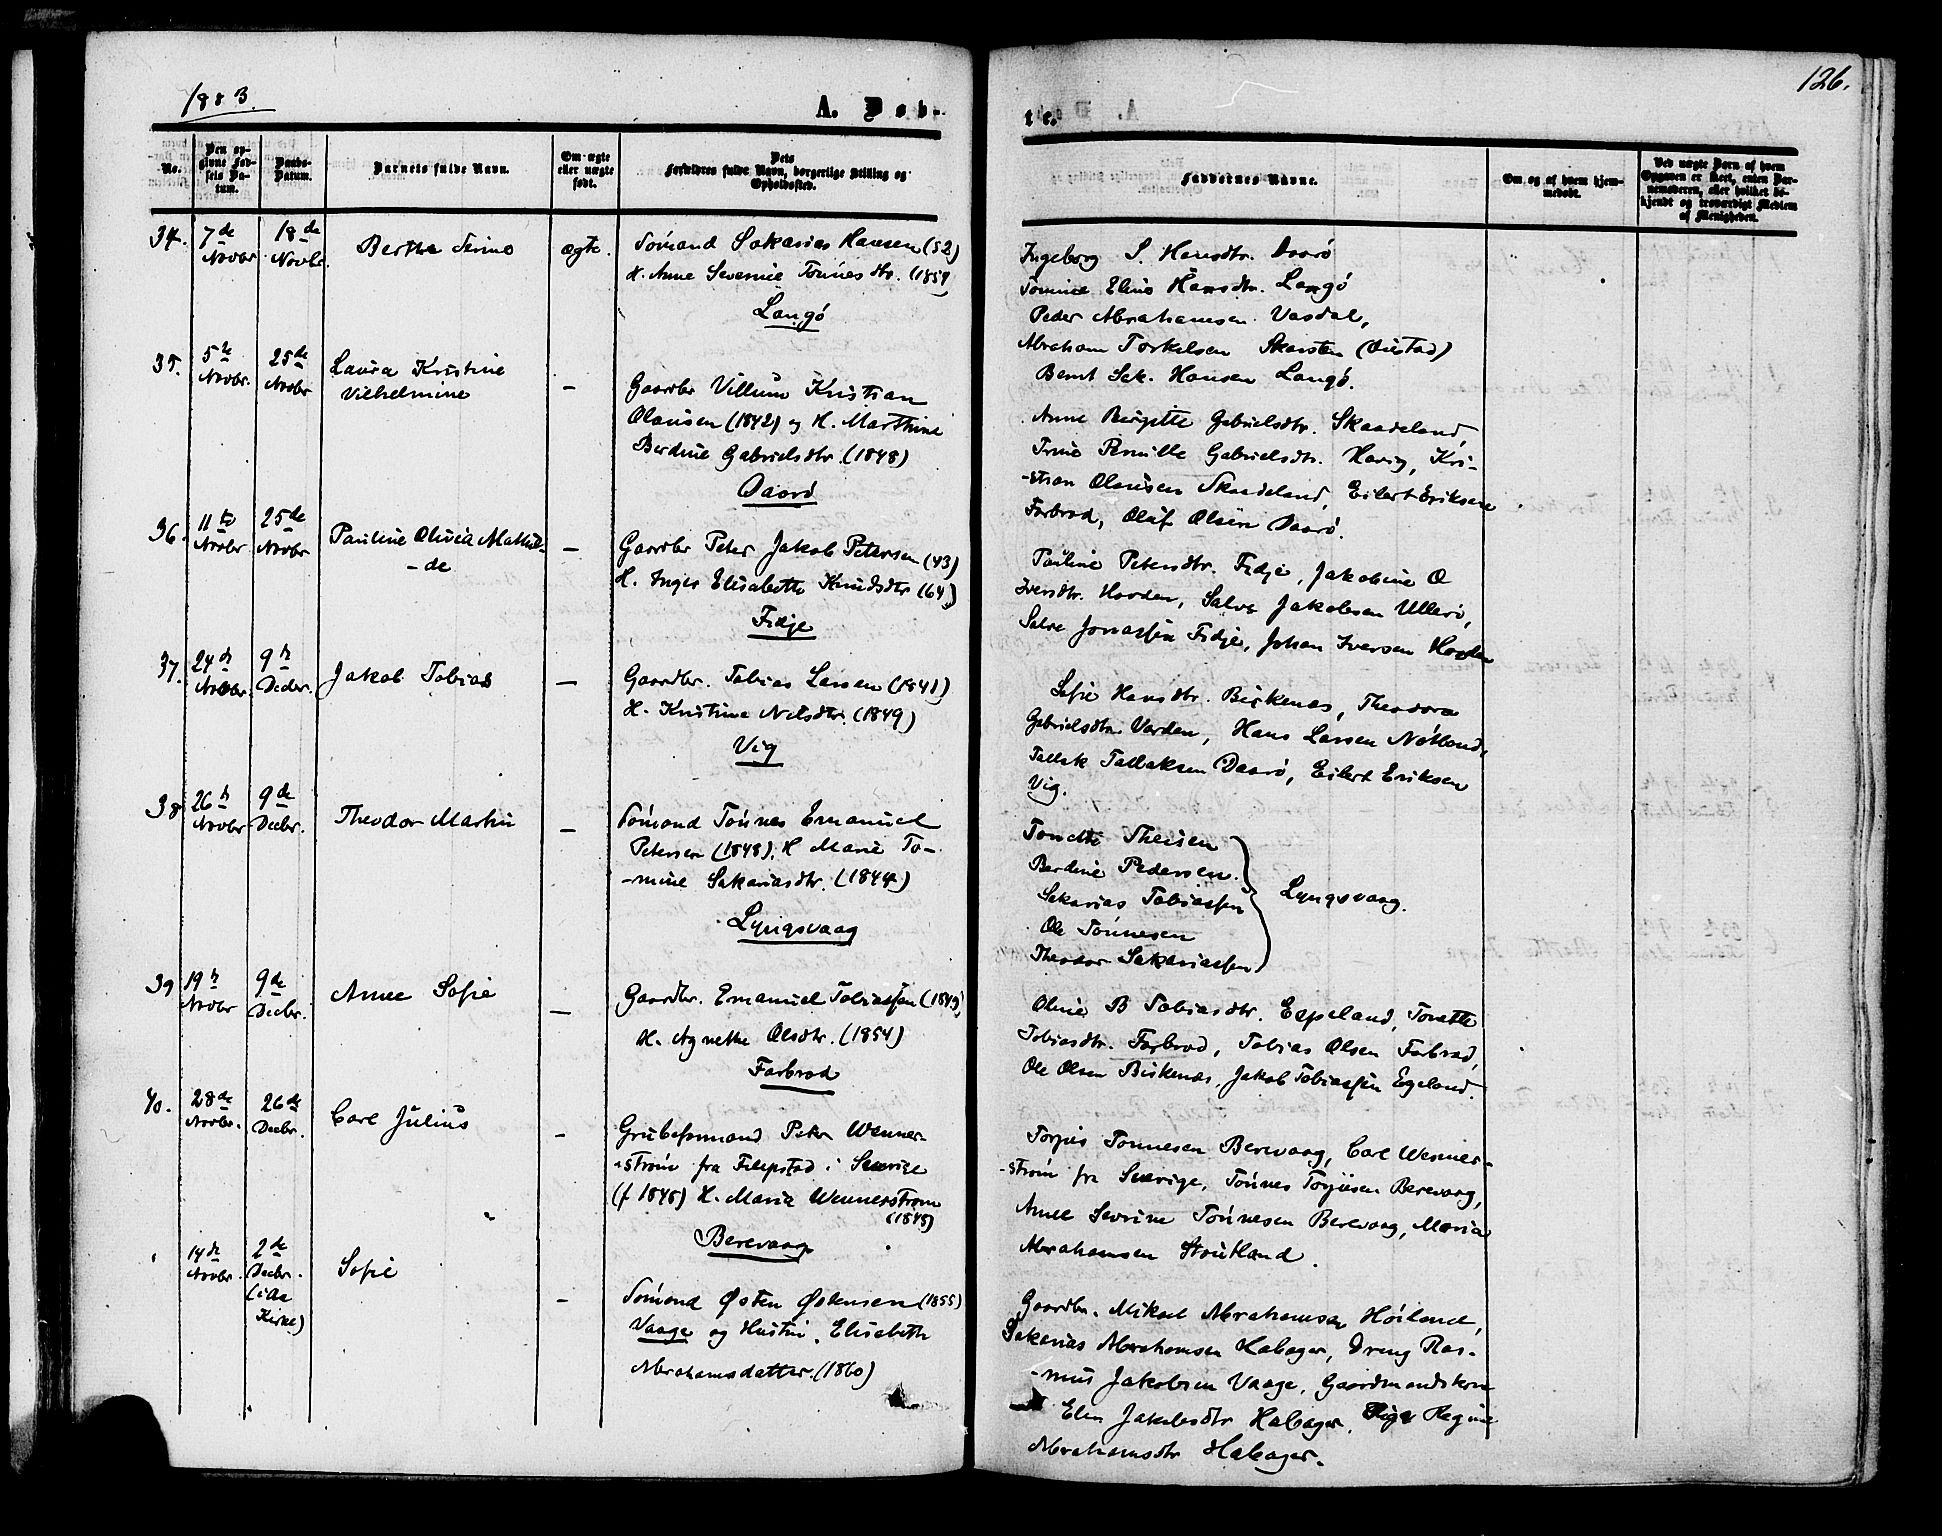 1883.
A. Døb-
te.
126.
No.
Den op-
givne Fød-
sels Da-
tum.
Daabs-
Datum.
Barnets fulde Navn.
Om ægte
eller uægte
født.
Dets
Forældres fulde Navn, borgerlige Stilling og
Opholdssted.
Faddernes Navne.
Om og af hvem hjem-
medøbt.
Ved uægte Børn af hvem
Opgaven er skeet, enten Bar-
nemoderen, eller hvilket be-
kjendt og troværdigt Medlem
af Menigheden.
34. 7de Novbr 18de Novbr. Berthe ægte.
Sømand Sakarias Hansen (52)
H. Anne Severine Tønnesdtr. (1857)
Langø
Ingeborg S. Hansdtr. Daarø
Tomine Eline Hansdtr. Langø
Peder Abrahamsen Vasdal,
Abraham Torkelsen Skarsten (Øustad)
Bernt Sak. Hansen Langø.
35. 5te Novbr. 25de Novbr Laura Kristine
Vilhelmine —
Gaardbr Villum Kristian
Olausen (1842) og H. Marthine
Berdine Gabrielsdtr. (1848)
Daarø
Anne Birgitte Gabrielsdtr. Skaadeland,
Trine Pernille Gabrielsdtr. Havig, Kri-
-stian Olausen Skaadeland, Eilert Eriksen
Farbrod, Olaf Olsen Daarø.
36. 11te Novbr 25de Novbr Pauline Olivia Mathil-
-de —
Gaardbr Peter Jakob Petersen (43)
H. Inger Elisabeth Knudsdtr (64)
Fidje
Pauline Petersdtr. Fidje, Jakobine O
Iversdtr. Hovden, Salve Jakobsen Ullerø,
Salve Jonassen Fidje, Johan Iversen Hovden
37. 24de Novbr. 9de Decbr. Jakob Tobias —
Gaardbr. Tobias Larsen (1841)
H. Kristine Nilsdtr. (1849)
Vig
Sofie Hansdtr. Birkenæs, Theodora
Gabrielsdtr. Varden, Hans Larsen Nøtland,
Tallak Tallaksen Daarø, Eilert Eriksen
Vig.
38 26de Novbr 9de Decbr. Theodor Martin —
Sømand Tønnes Emanuel
Petersen (1848). H Marie To-
-mine Sakariasdtr. (1844)
Lyngsvaag
Tonette Theisen
Berdine Pedersen.
Sakarias Tobiassen
Ole Tønnesen
Theodor Sakariassen
Lyngsvaag.
39 19de Novbr 9de Decbr. Anne Sofie —
Gaardbr. Emanuel Tobiassen (1849)
H. Agnethe Olsdtr. (1854)
Farbrod
Oline B Tobiasdtr. Egeland, Tonette
Tobiasdtr. Farbrod, Tobias Olsen Farbrod,
Ole Olsen Birkenæs, Jakob Tobiassen Egeland.
40. 28de Novbr. 26de Decbr. Carl Julius —
Grubeformand Peter Wenner-
-strøm fra Filipstad i Sverige
(f 1848) H. Maria Wennerstrøm
(1848)
Berevaag
Torjus Tønnesen Berevaag, Carl Wenner-
-strøm fr Sverige, Tønnes Torjusen Berevaag,
Anne Sevrine Tønnesen Berevaag, Maria
Abrahamsen Stoutland.
14de Novbr. 2de Decbr. (i Aa Kirke) Sofie —
Sømand Østen Østensen (1855)
Vaage og Hustru. Elisabeth
Abrahamsdatter. (1860)
Gaardbr. Mikael Abrahamsen Høiland,
Sakarias Abrahamsen Habager, Dreng Ras-
-mus Jakobsen Vaage, Gaardmandskone
Elen Jakobsdtr Habager. Pige Regine
Abrahamsdtr Habager.